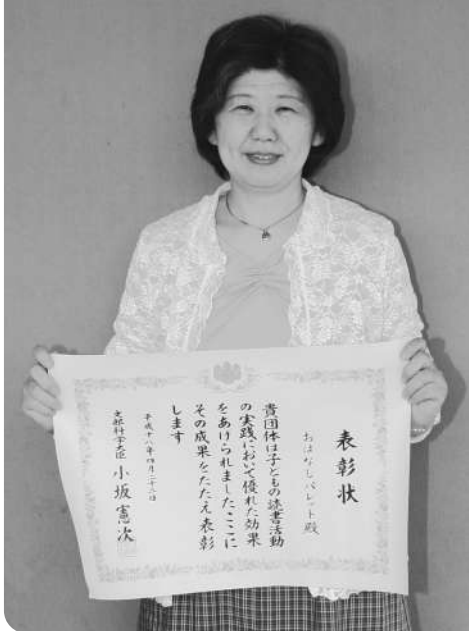 表彰状
おはなしパレット殿
貴団体は子どもの読書活動
の実践において優れた効果
をあげられましたここに
その成果をたたえ表彰
します
平成十八年四月二十三日
文部科学大臣 小坂憲次